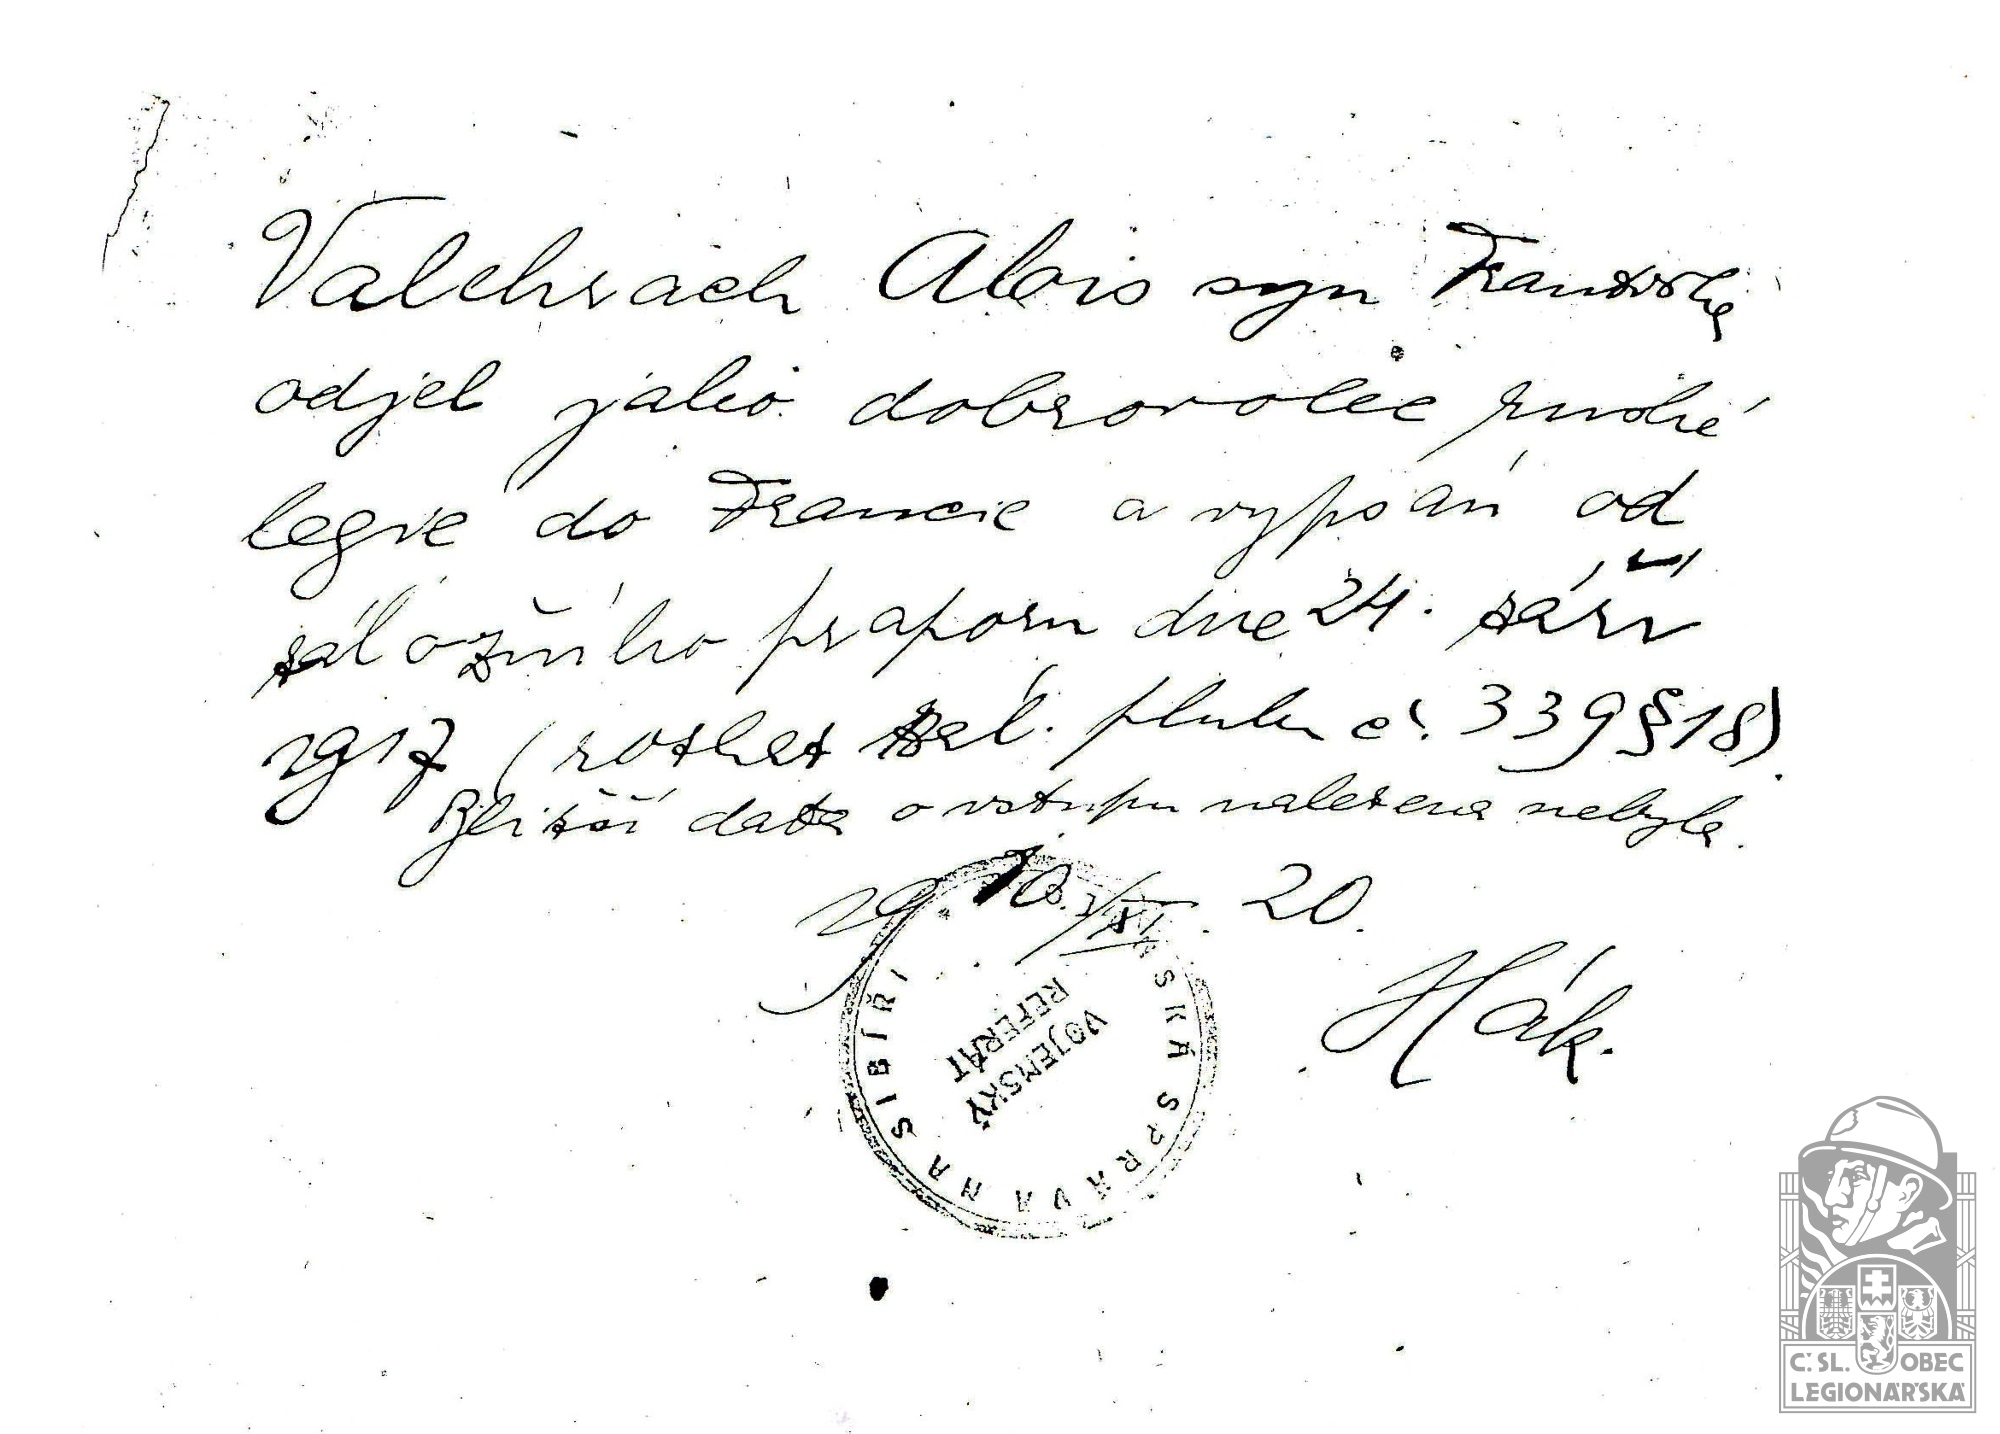 Valchrach Alois syn Františka
odjel jako dobrovolec ruské
legie do Francie a vypsán od
záložního praporu dne 24. září
1917 (rozkaz zál. pluku č. 339 § 18).
Bližší data o vstupu nalezena nebyla.
10./XI. 20.
Hák.
SKÁ SPRÁVA NA SIBIŘI
VOJENSKÝ
REFERÁT
Č. SL. OBEC
LEGIONÁŘSKÁ